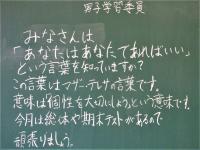 男子学習委員
みなさんは
「あなたはあなたであればいい」
という言葉を知っていますか?
この言葉はマザーテレサの言葉です。
意味は個性を大切にしようという意味です。
今月は総体や期末テストがあるので
頑張りましょう。